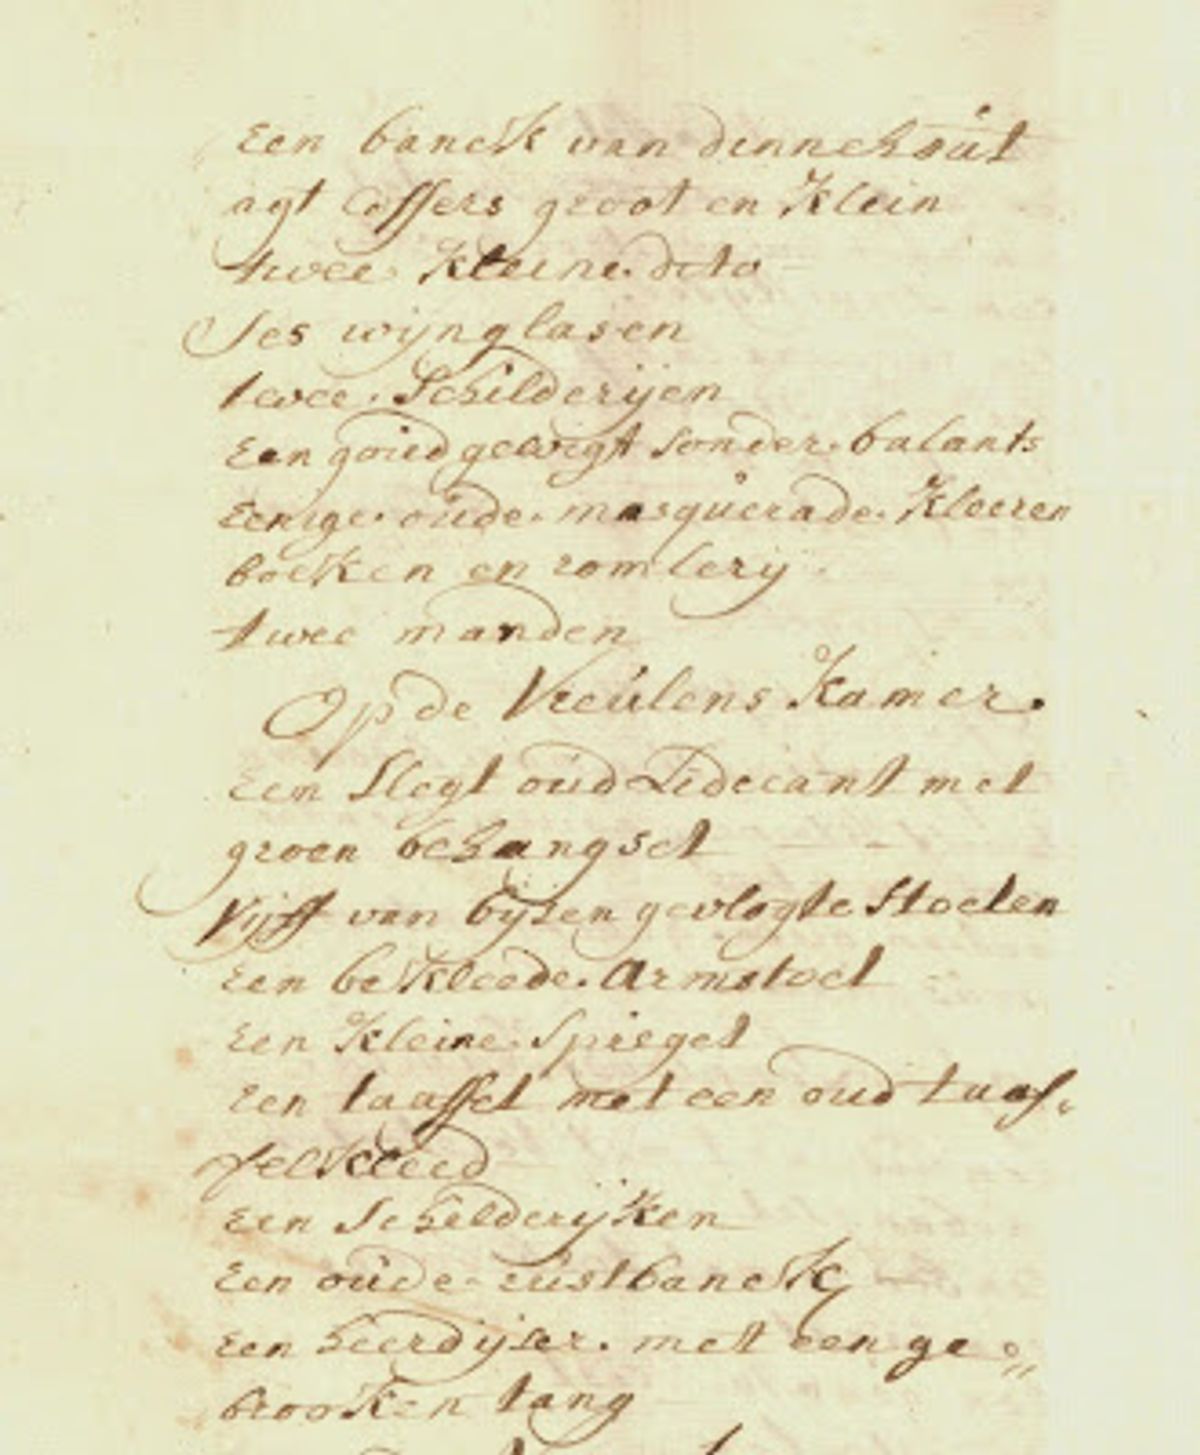 Een banck van dennehout
agt Coffers groot en Klein
twee Kleine dito
Ses wijnglasen
twee Schilderijen
Een goud gewigt sonder balants
Eenige oude masquerade Kleeren
boeken en romlerij
twee manden
Op de Vreulens Kamer.
Een Slegt oud Ledecant met
groen behangsel
Vijff van bijsen gevlogte Stoelen
Een bekleede Armstoel
Een Kleine Spiegel
Een taaffel met een oud taaf-
felkleed
Een Schilderijken
Een oude rustbanck
Een heerdijser met een ge=
brooken tang